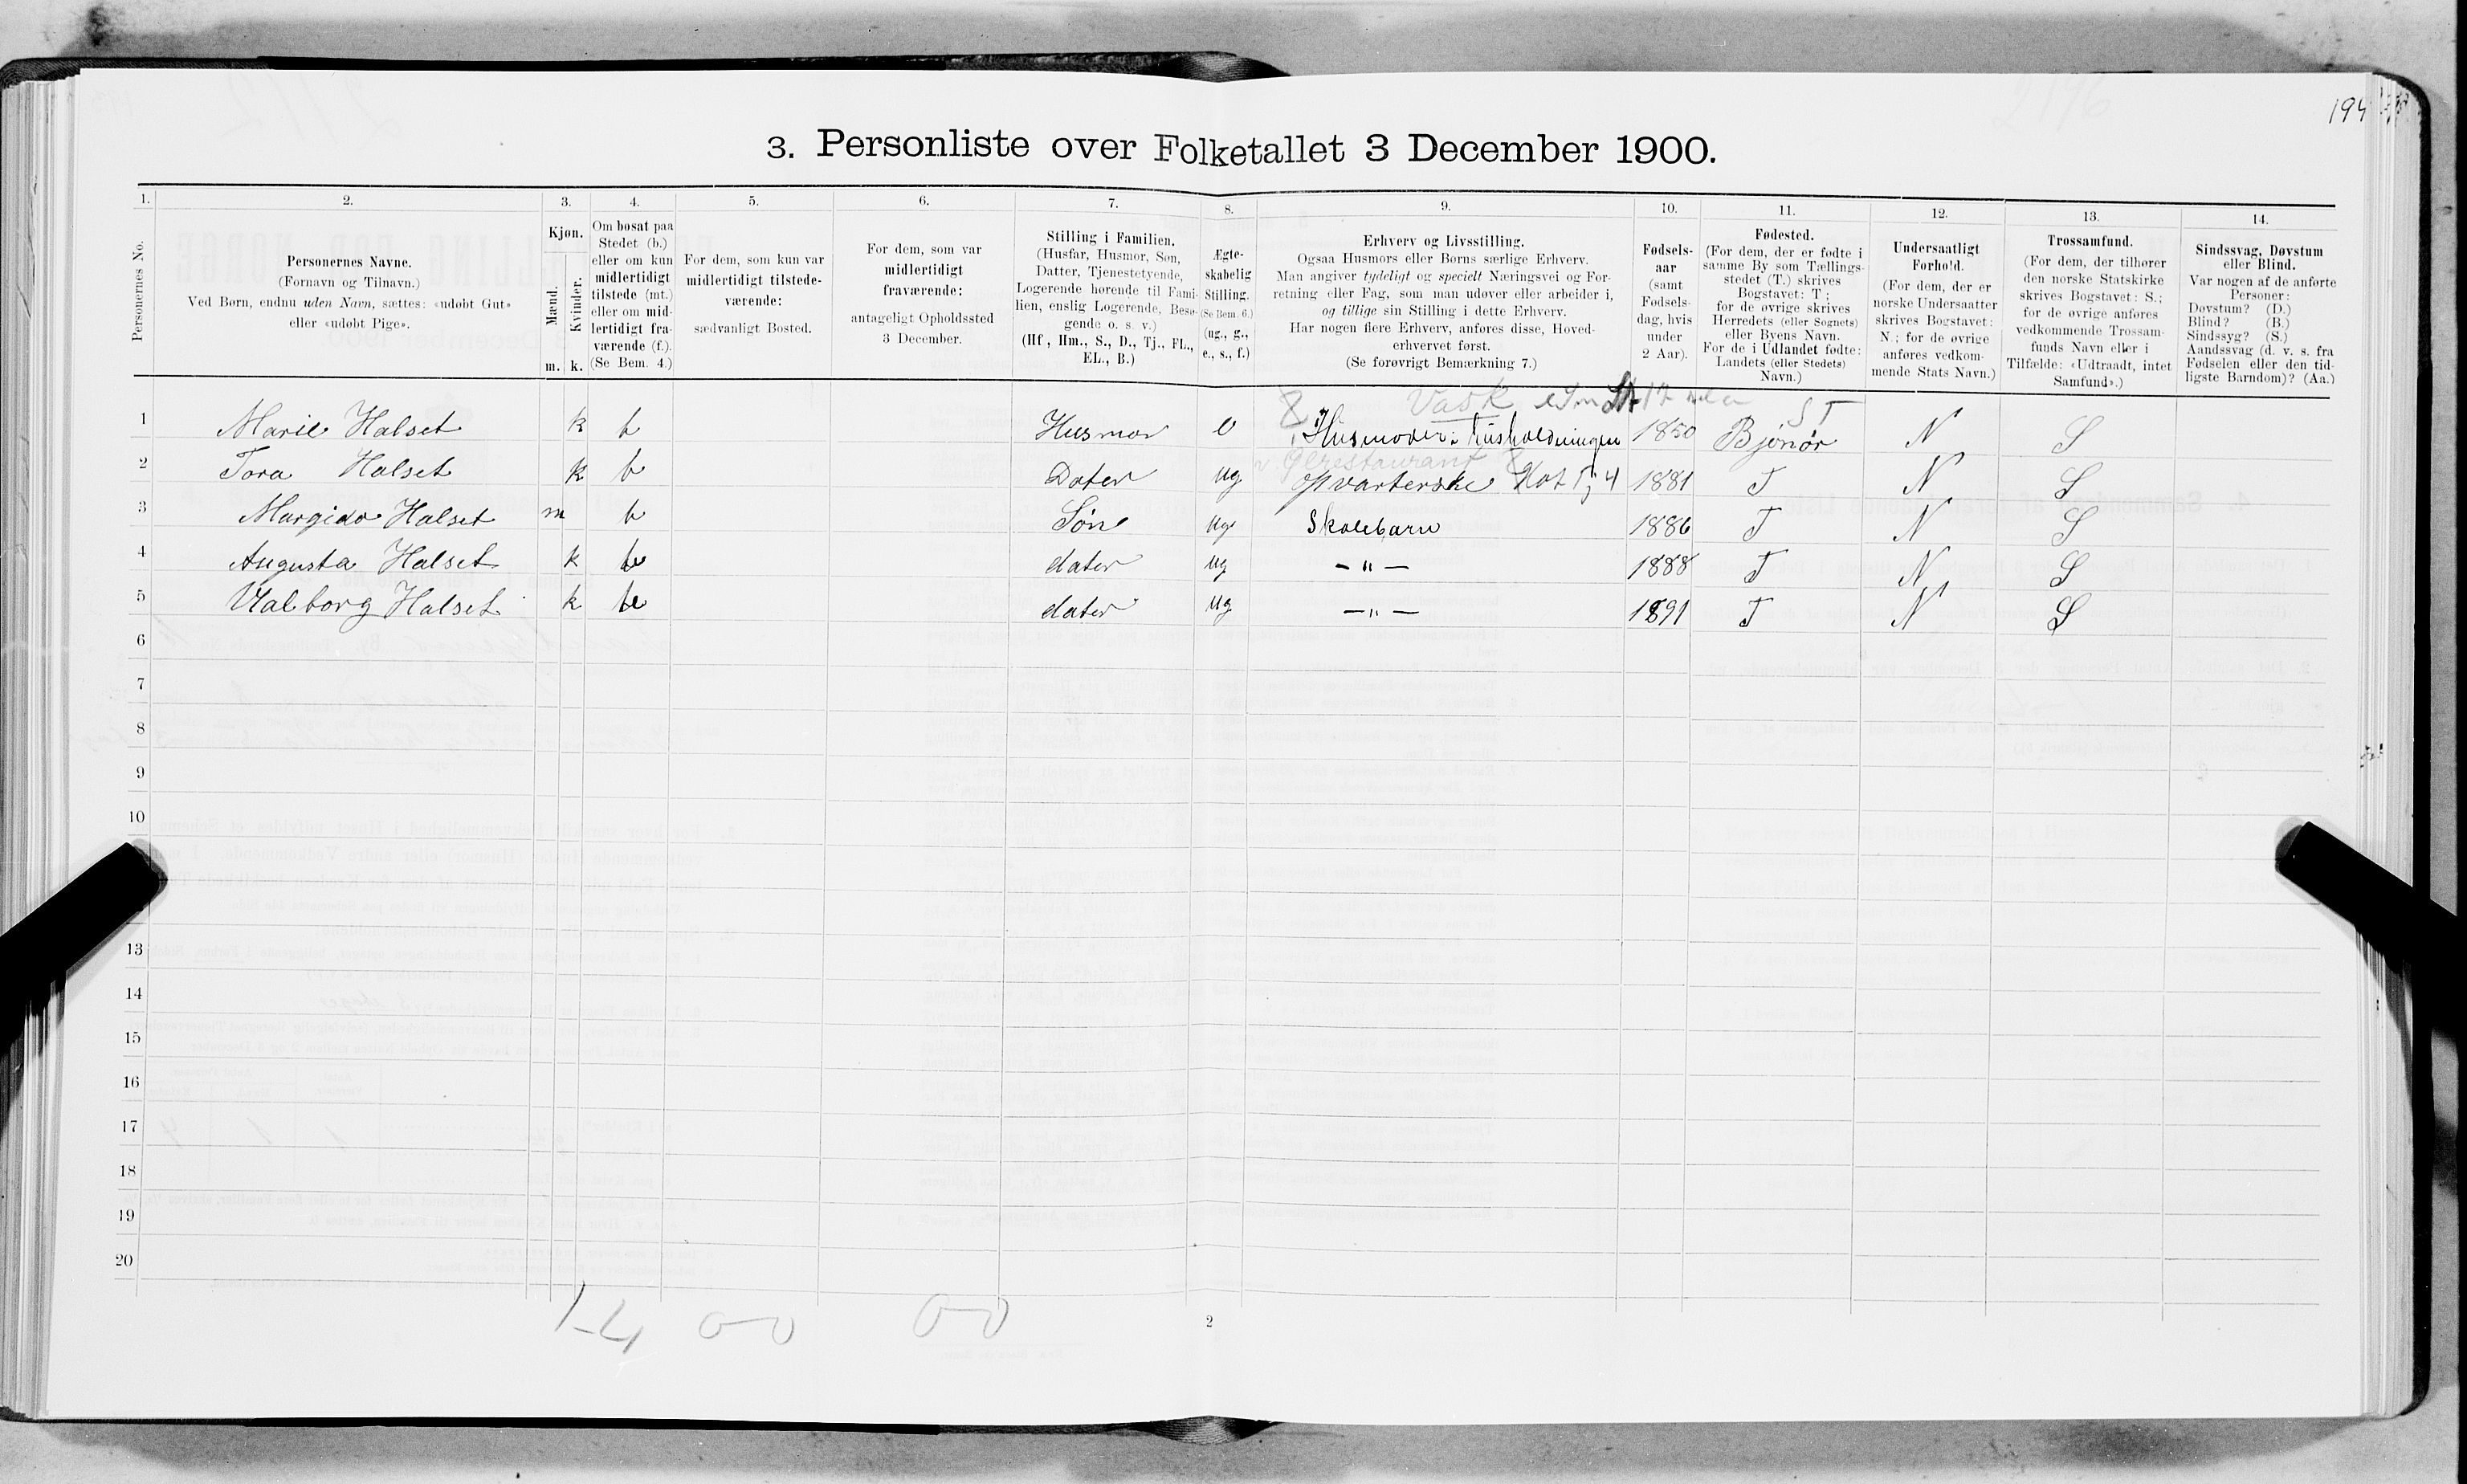 194
3. Personliste over Folketallet 3 December 1900.
1. 2. 3. 4. 5. 6. 7. 8. 9. 10. 11. 12. 13. 14.
Personernes No.
Personernes Navne.
(Fornavn og Tilnavn.)
Ved Børn, endnu uden Navn, sættes: «udøbt Gut»
eller «udøbt Pige».
Kjøn.
Mænd.
Kvinder.
m. k.
Om bosat paa
Stedet (b.)
eller om kun
midlertidigt
tilstede (mt.)
eller om mid-
lertidigt fra-
værende (f.).
(Se Bem. 4.)
For dem, som kun var
midlertidigt tilstede-
værende:
sædvanligt Bosted.
For dem, som var
midlertidigt
fraværende:
antageligt Opholdssted
3 December.
Stilling i Familien.
(Husfar, Husmor, Søn,
Datter, Tjenestetyende,
Logerende hørende til Fami-
lien, enslig Logerende, Besø-
gende o. s. v.)
(Hf., Hm., S., D., Tj., FL.,
EL., B.)
Ægte-
skabelig
Stilling.
(Se Bem. 6.)
(ug., g.,
e., s., f.)
Erhverv og Livsstilling.
Ogsaa Husmors eller Børns særlige Erhverv.
Man angiver tydeligt og specielt Næringsvei og For-
retning eller Fag, som man udøver eller arbeider i,
og tillige sin Stilling i dette Erhverv.
Har nogen flere Erhverv, anføres disse, Hoved-
erhvervet først.
(Se forøvrigt Bemærkning 7.)
Fødsels-
aar
(samt
Fødsels-
dag, hvis
under
2 Aar).
Fødested.
(For dem, der er fødte i
samme By som Tællings-
stedet (T.) skrives
Bogstavet: T;
for de øvrige skrives
Herredets (eller Sognets)
eller Byens Navn.
For de i Udlandet fødte:
Landets (eller Stedets)
Navn.)
Undersaatligt
Forhold.
(For dem, der er
norske Undersaatter
skrives Bogstavet:
N.; for de øvrige
anføres vedkom-
mende Stats Navn.)
Trossamfund.
(For dem, der tilhører
den norske Statskirke
skrives Bogstavet: S.;
for de øvrige anføres
vedkommende Trossam-
funds Navn eller i
Tilfælde: «Udtraadt, intet
Samfund».)
Sindssvag, Døvstum
eller Blind.
Var nogen af de anførte
Personer:
Døvstum? (D.)
Blind? (B.)
Sindssyg? (S.)
Aandssvag (d. v. s. fra
Fødselen eller den tid-
ligste Barndom)? (Aa.)
8 Vask ST
1 Marie Halset k b Husmor e Husmoder i Husholdningen 1850 Bjønør N S
Ølrestaurant
2 Tora Halset k b Dater ug opvarterske 1881 T N S
3 Margido Halset m b Søn ug Skolebarn 1886 T N S
4 Augusta Halset k b dater ug — " — 1888 T N S
5 Valborg Halset k b dater ug — " — 1891 T N S
6
7
8
9
10
13
14
15
16
17
18
19
20
1-4 0-0 0-0
2